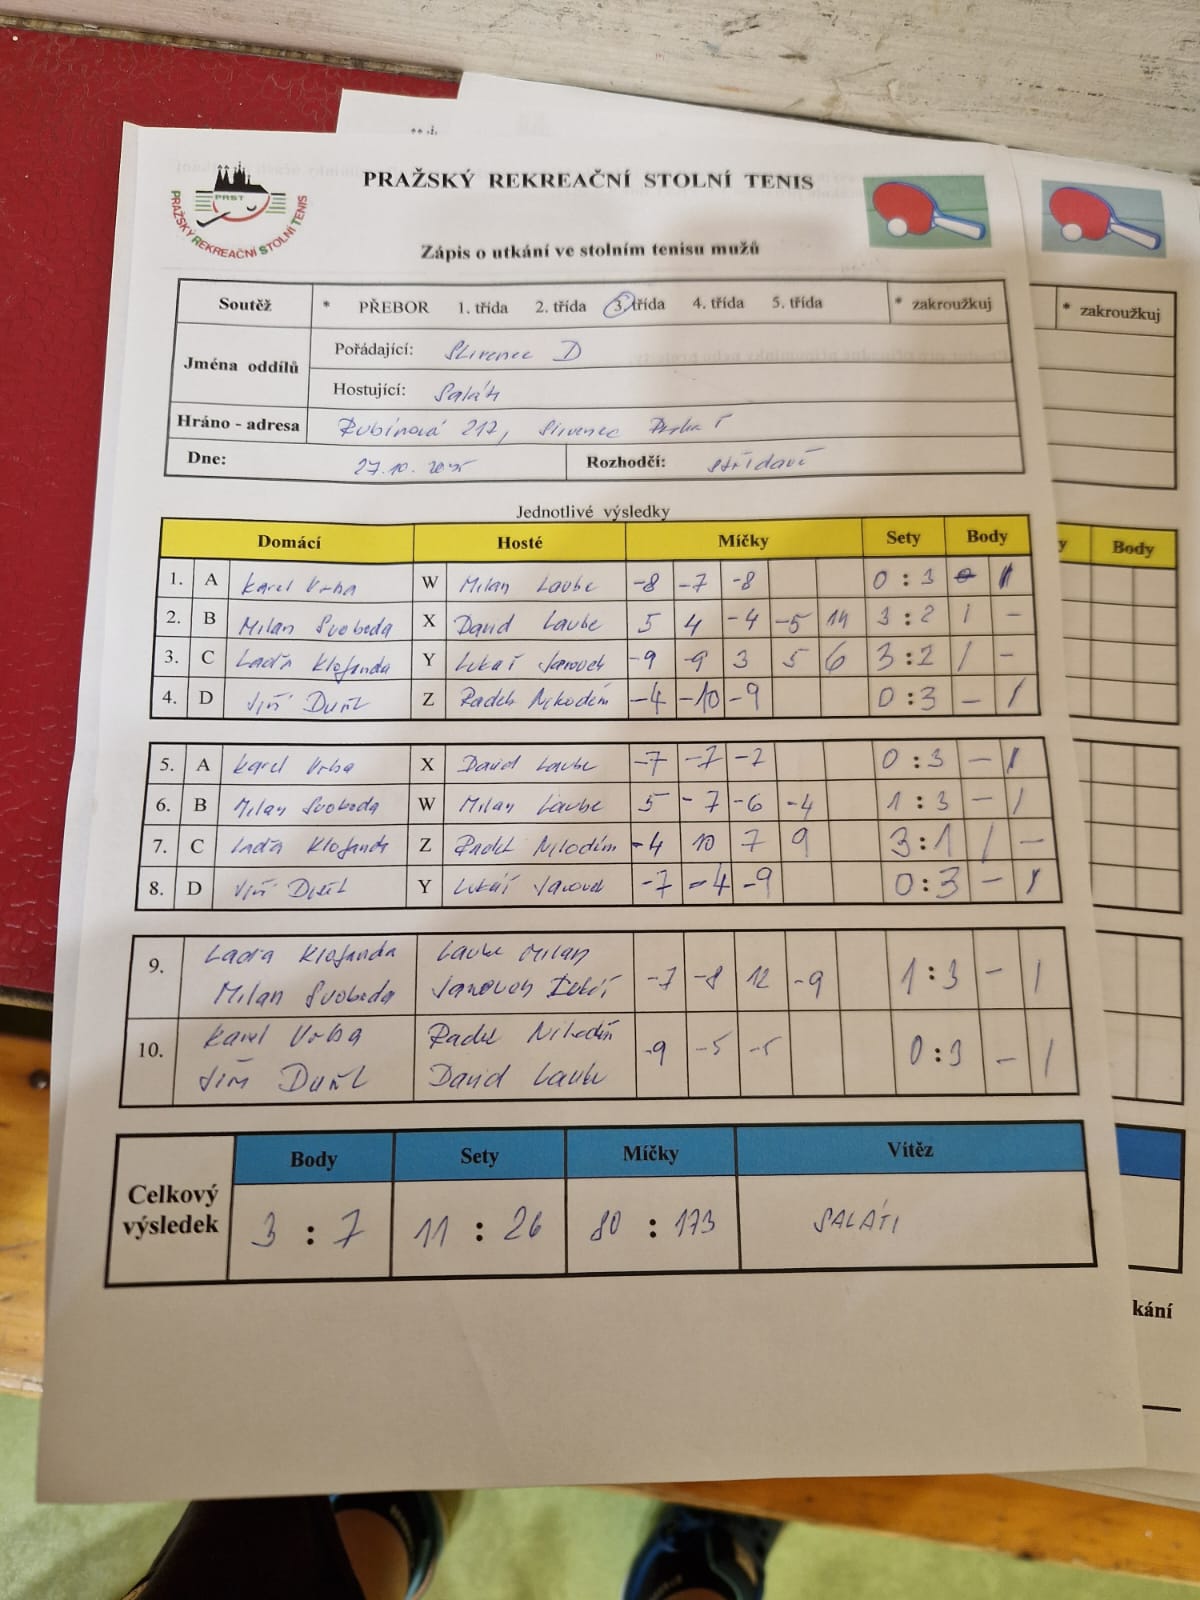 PRAŽSKÝ REKREAČNÍ STOLNÍ TENIS
PRST
PRAŽSKÝ REKREAČNÍ STOLNÍ TENIS
Zápis o utkání ve stolním tenisu mužů
Soutěž * PŘEBOR 1. třída 2. třída 3. třída 4. třída 5. třída * zakroužkuj
* zakroužkuj
Jména oddílů
Pořádající: Slivenec D
Hostující: Saláti
Hráno - adresa Rubínová 217, Slivenec Praha 5
Dne: 27.10. 2025 Rozhodčí: střídavě
Jednotlivé výsledky
Domácí Hosté Míčky Sety Body
y Body
1. A Karel Vrba W Milan Laube -8 -7 -8 0 : 3 0 1
2. B Milan Svoboda X David Laube 5 4 -4 -5 14 3 : 2 1 -
3. C Laďa Klofanda Y Lukáš Janouch -9 -9 3 5 6 3 : 2 1 -
4. D Jiří Duřt Z Radek Nikodém -4 -10 -9 0 : 3 - 1
5. A Karel Vrba X David Laube -7 -7 -7 0 : 3 - 1
6. B Milan Svoboda W Milan Laube 5 -7 -6 -4 1 : 3 - 1
7. C Laďa Klofanda Z Radek Nikodém -4 10 7 9 3 : 1 1 -
8. D Jiří Y Lukáš Janouch -7 -4 -9 0 : 3 - 1
9. Laďa Klofanda Laube Milan -7 -8 12 -9 1 : 3 - 1
Milan Svoboda Janouch Lukáš
10. Karel Vrba Radek Nikodém -9 -5 -5 0 : 3 - 1
Jiří David Laube
Celkový výsledek
Body Sety Míčky Vítěz
3 : 7 11 : 26 80 : 173 SALÁTI
kání